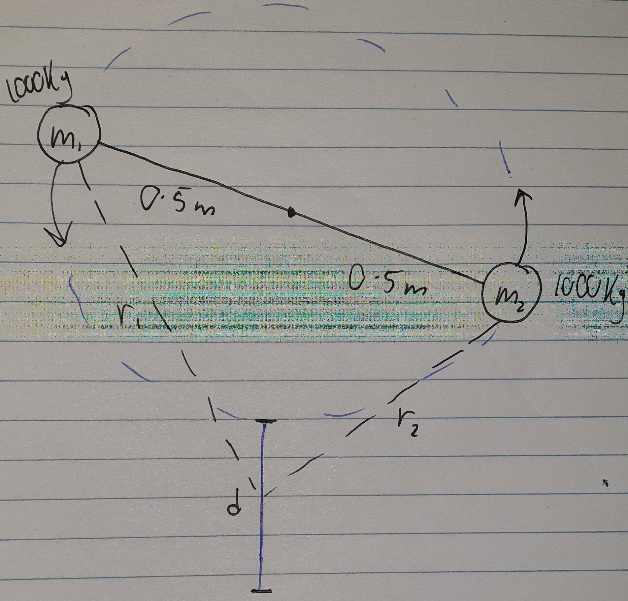 1000Kg
m₁
0.5m
0.5m
m₂
1000Kg
r₁
r₂
d